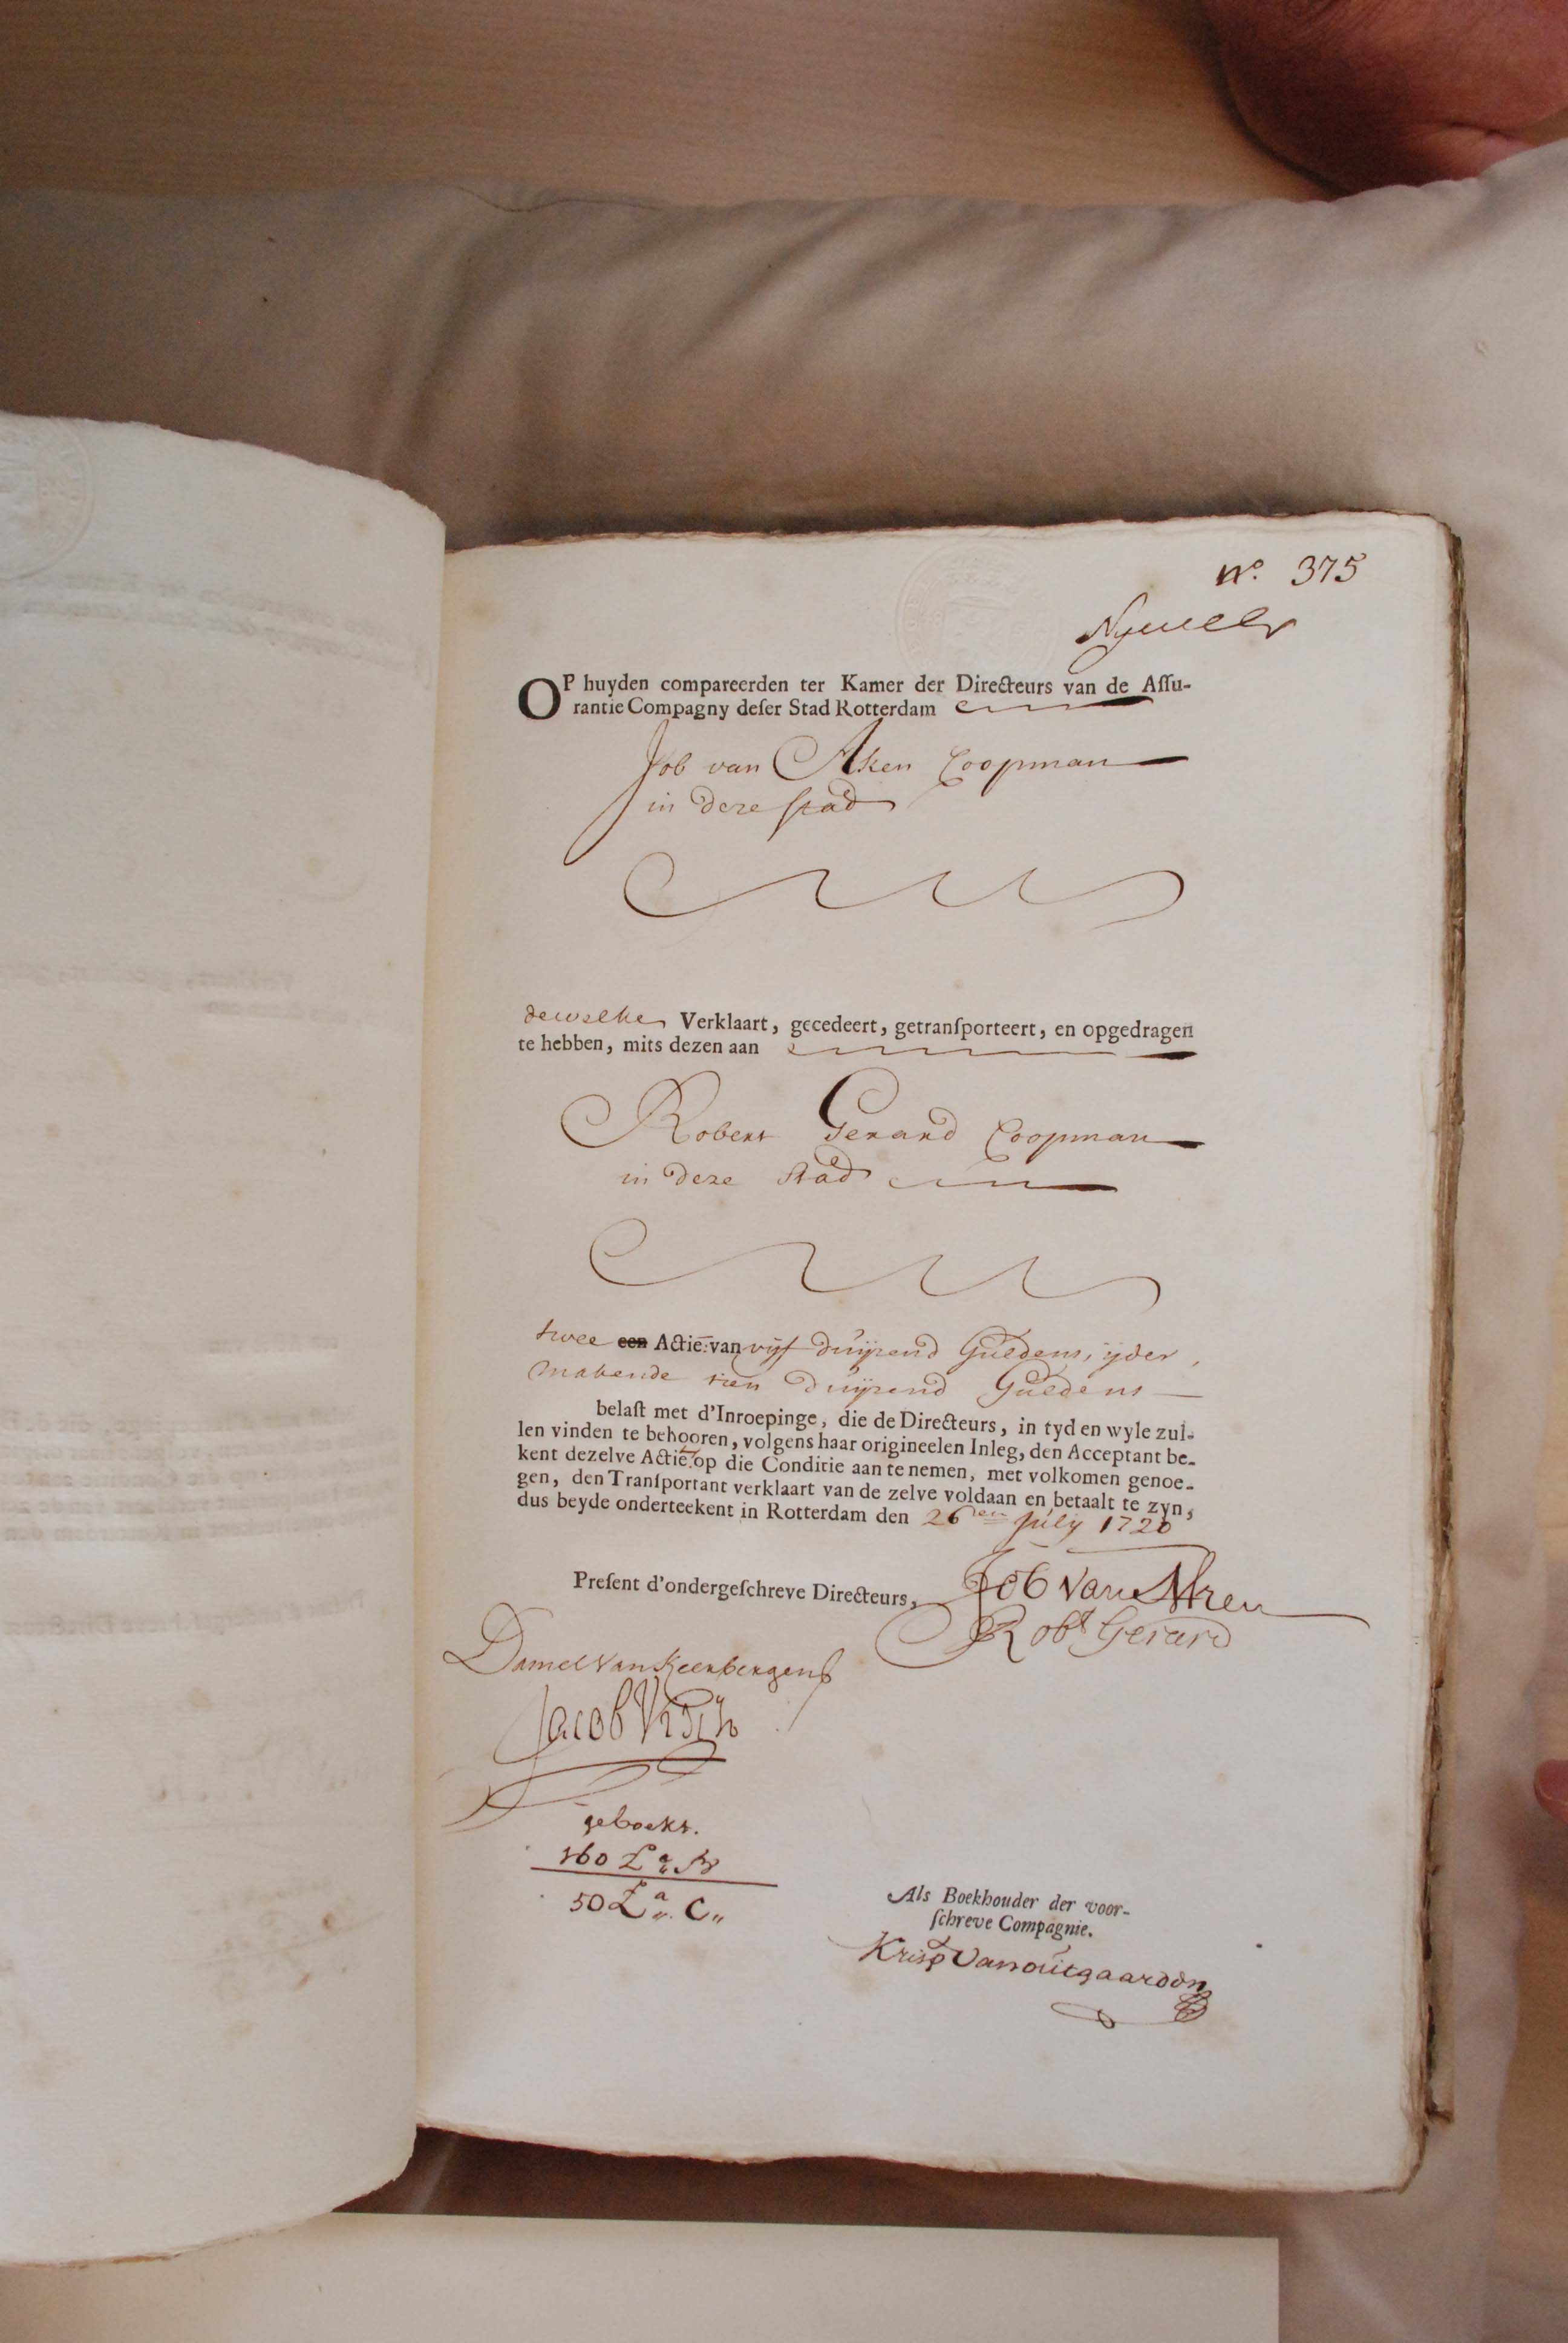 No. 375
OP huyden compareerden ter Kamer der Directeurs van de Aſſu-
rantie Compagny deſer Stad Rotterdam
Job van Aken Coopman
in deze stad
dewelke Verklaart, gecedeert, getranſporteert, en opgedragen
te hebben, mits dezen aan
Robert Gerard Coopman
in deze stad
twee een Actie: van vijf duijzend Guldens, ijder,
makende tien duijzend Guldens
belaſt met d'Inroepinge, die de Directeurs, in tyd en wyle zul-
len vinden te behooren, volgens haar origineelen Inleg, den Acceptant be-
kent dezelve Actie op die Conditie aan te nemen, met volkomen genoe-
gen, den Tranſportant verklaart van de zelve voldaan en betaalt te zyn,
dus beyde onderteekent in Rotterdam den 26en July 1720
Preſent d'ondergeſchreve Directeurs,
Job van Aken
Robt Gerard
Daniel Van Keerbergen
Jacob
geboekt.
160 La
50 La C
Als Boekhouder der voor-
ſchreve Compagnie.
Krisp Vanoutgaarden